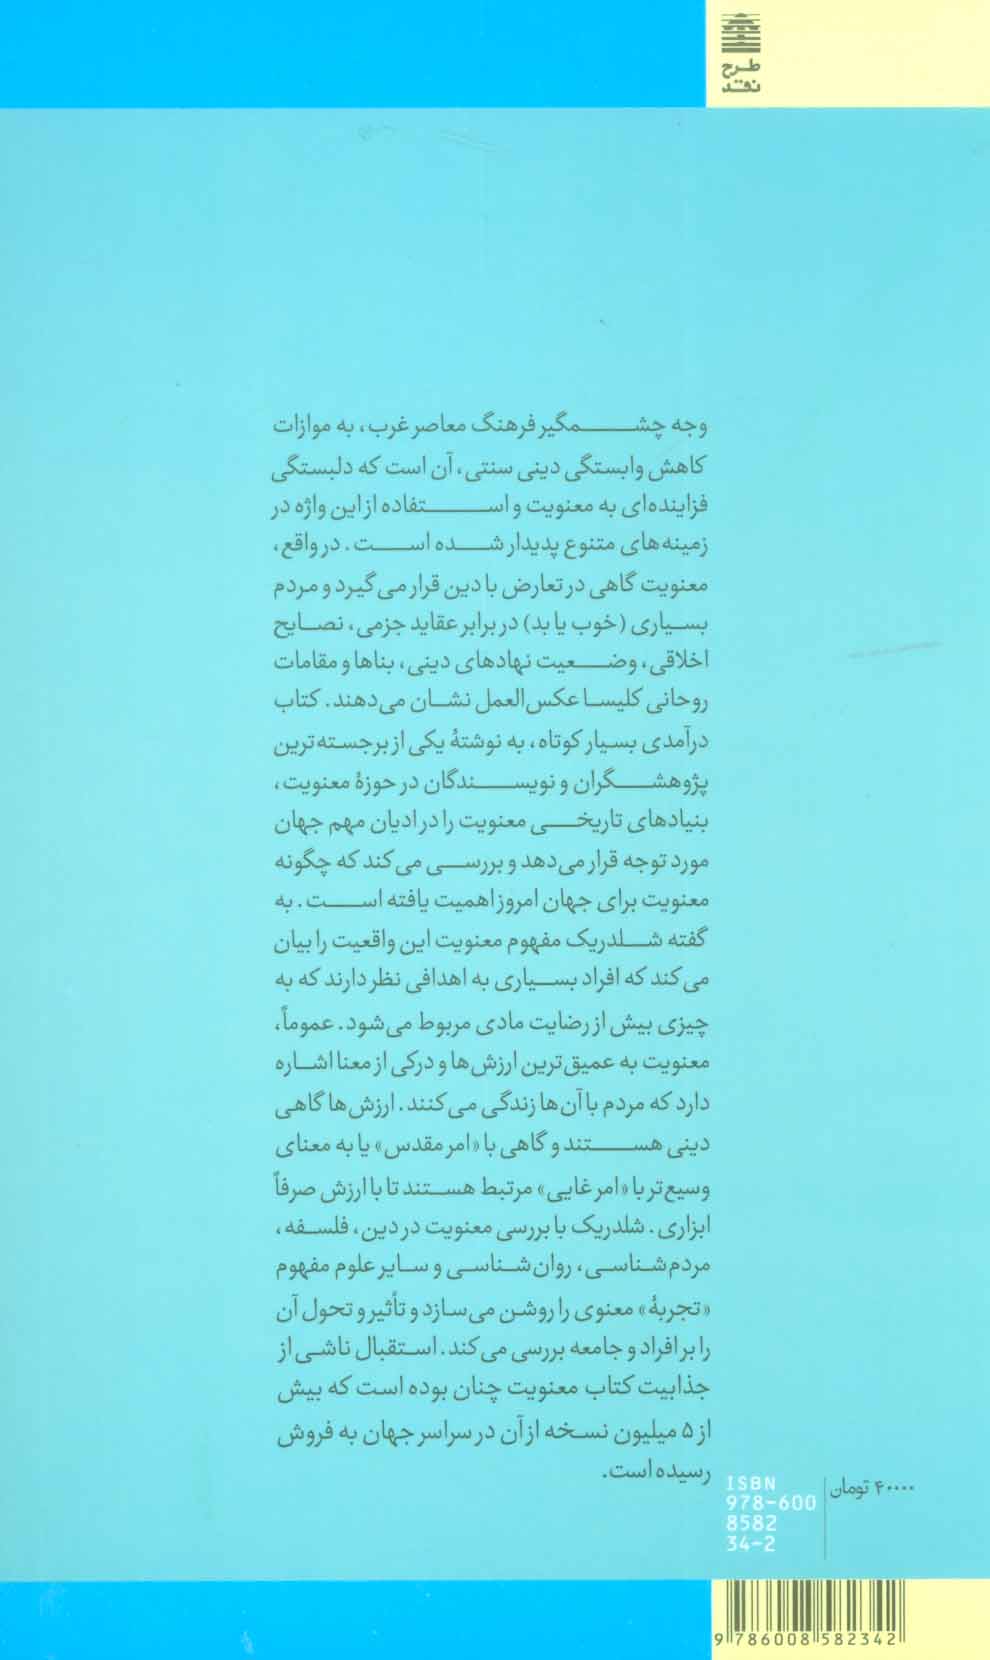 طرح
نقد
وجه چشمگیر فرهنگ معاصر غرب، به موازات
کاهش وابستگی دینی سنتی، آن است که دلبستگی
فزاینده‌ای به معنویت و استفاده از این واژه در
زمینه‌های متنوع پدیدار شده است. در واقع،
معنویت گاهی در تعارض با دین قرار می‌گیرد و مردم
بسیاری (خوب یا بد) در برابر عقاید جزمی، نصایح
اخلاقی، وضعیت نهادهای دینی، بناها و مقامات
روحانی کلیسا عکس‌العمل نشان می‌دهند. کتاب
درآمدی بسیار کوتاه، به نوشتهٔ یکی از برجسته‌ترین
پژوهشگران و نویسندگان در حوزهٔ معنویت،
بنیادهای تاریخی معنویت را در ادیان مهم جهان
مورد توجه قرار می‌دهد و بررسی می‌کند که چگونه
معنویت برای جهان امروز اهمیت یافته است. به
گفته شلدریک مفهوم معنویت این واقعیت را بیان
می‌کند که افراد بسیاری به اهدافی نظر دارند که به
چیزی بیش از رضایت مادی مربوط می‌شود. عموماً،
معنویت به عمیق‌ترین ارزش‌ها و درکی از معنا اشاره
دارد که مردم با آن‌ها زندگی می‌کنند. ارزش‌ها گاهی
دینی هستند و گاهی با «امر مقدس» یا به معنای
وسیع‌تر با «امر غایی» مرتبط هستند تا با ارزش صرفاً
ابزاری. شلدریک با بررسی معنویت در دین، فلسفه،
مردم‌شناسی، روان‌شناسی و سایر علوم مفهوم
«تجربهٔ» معنوی را روشن می‌سازد و تأثیر و تحول آن
را بر افراد و جامعه بررسی می‌کند. استقبال ناشی از
جذابیت کتاب معنویت چنان بوده است که بیش
از ۵ میلیون نسخه از آن در سراسر جهان به فروش
رسیده است.
۴۰۰۰۰ تومان
ISBN
978-600
8582
34-2
9 786008 582342